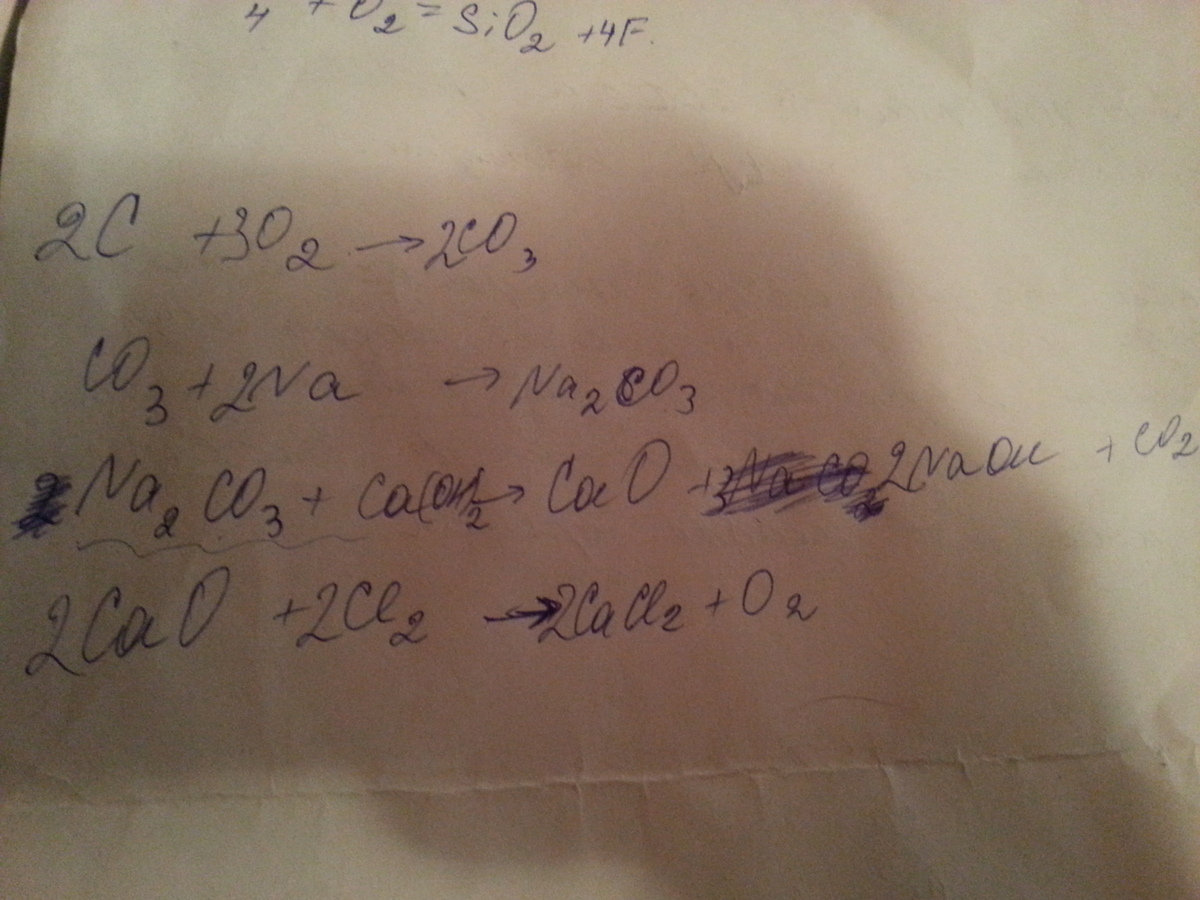 4 + O₂ = SiO₂ + 4F.
2C + 3O₂ → 2CO₃
CO₃ + 2Na → Na₂CO₃
Na₂CO₃ + Ca(OH)₂ → CaO + 2NaOH + CO₂
2CaO + 2Cl₂ → 2CaCl₂ + O₂